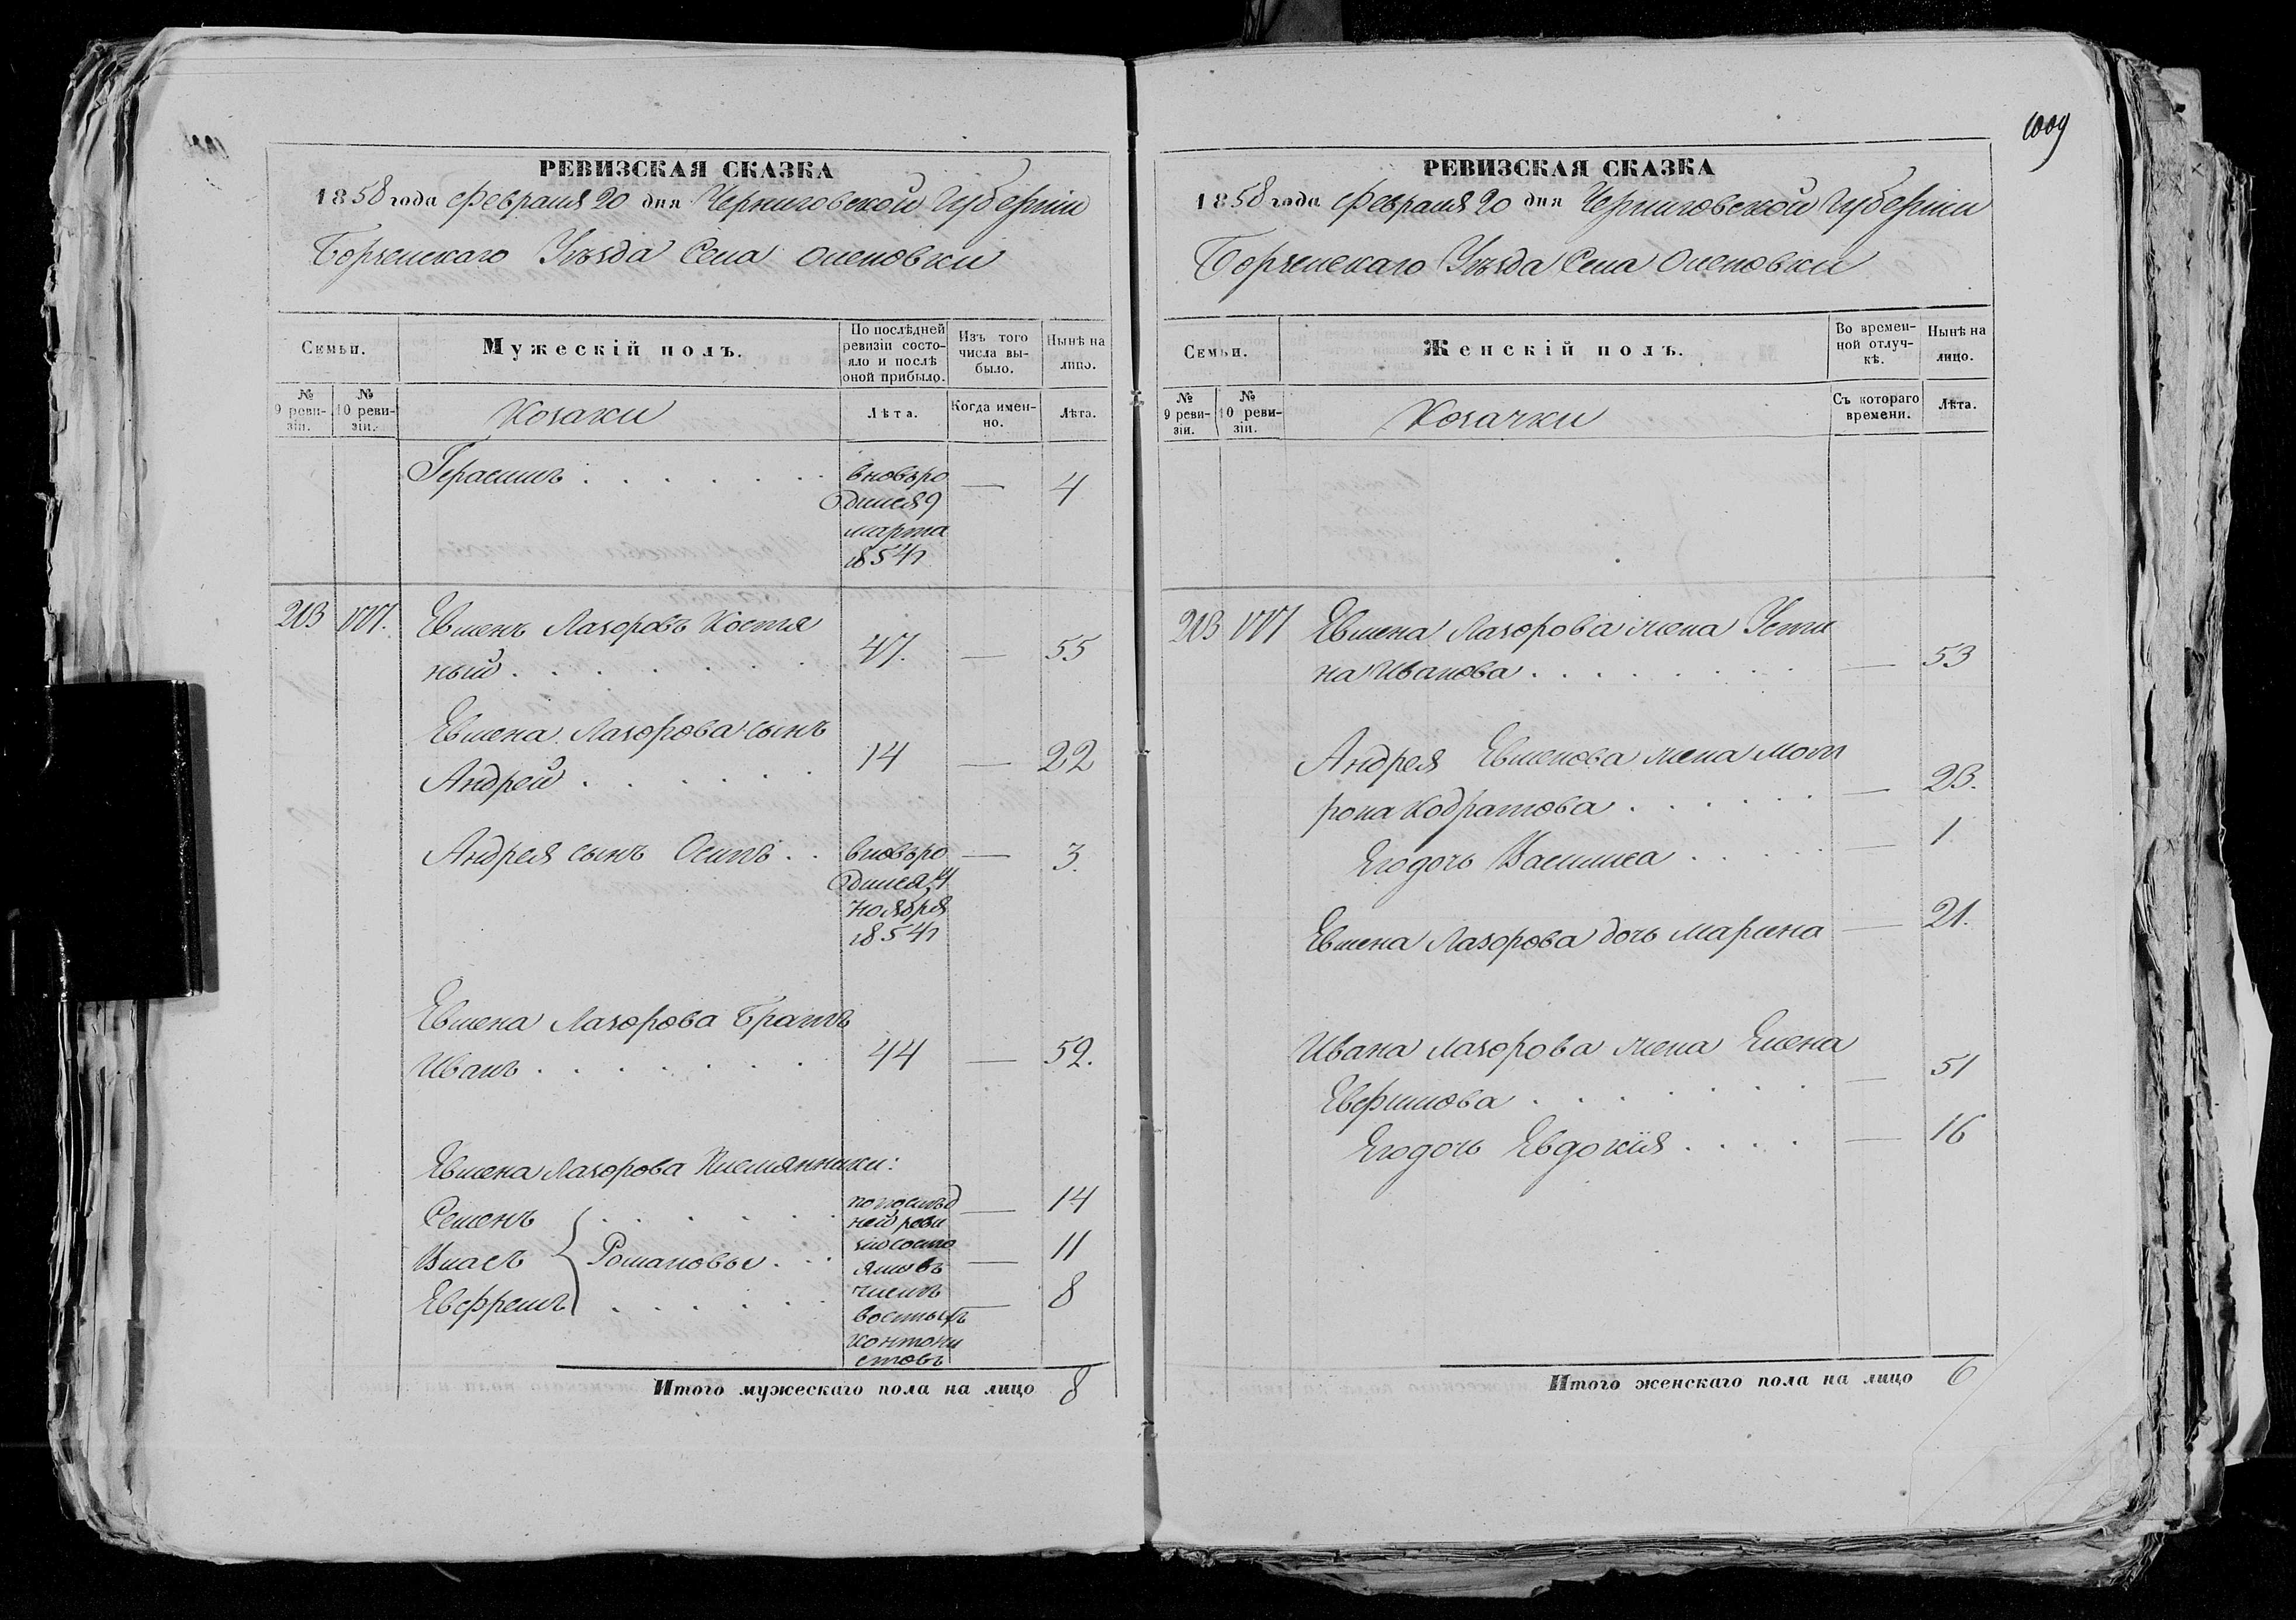 РЕВИЗСКАЯ СКАЗКА
1858 года Февраля 20 дня Черниговской Губерніи
Борзенскаго Уѣзда Села Оленовки
Семьи.
Мужескій полъ.
По послѣдней ревизіи состояло и послѣ оной прибыло.
Изъ того числа выбыло.
Нынѣ на лицо.
№ 9 ревизіи.
№ 10 ревизіи.
Козаки
Лѣта.
Когда именно.
Лѣта.
Герасимъ . . . . . . . вновьро — 4
дился 9
марта
1854 г
203
Евменъ Лазоровъ Костя
ный . . . . . . . 47. — 55
Евмена Лазорова сынъ
Андрей . . . . . . 14 — 22
Андрея сынъ Осипъ . . вновьро — 3.
дился 4
ноября
1854 г
Евмена Лазорова Братъ
Иванъ . . . . . . . 44 — 52.
Евмена Лазорова Племянники:
Семенъ . . . . . . по послѣд — 14
ней реви
зіи состо
Власъ } Романовы . . . яли въ — 11
числѣ
Евфремъ . . . . . . — 8
кантони
стовъ
Итого мужескаго пола на лицо 8
1009
РЕВИЗСКАЯ СКАЗКА
1858 года Февраля 20 дня Черниговской Губерніи
Борзенскаго Уѣзда Села Оленовки
Семьи.
Женскій полъ.
Во временной отлучкѣ.
Нынѣ на лицо.
№ 9 ревизіи.
№ 10 ревизіи.
Козачки
Съ котораго времени.
Лѣта.
203
Евмена Лазорова жена Усти
на Иванова . . . . . . . — 53
Андрея Евменова жена Мот
рона Кодратова . . . . . . — 23.
Его дочь Василиса . . . . . — 1
Евмена Лазорова дочь Марина — 21.
Ивана Лазорова жена Елена
Евфимова . . . . . . . — 51
Его дочь Евдокія . . . . — 16
Итого женскаго пола на лицо 6